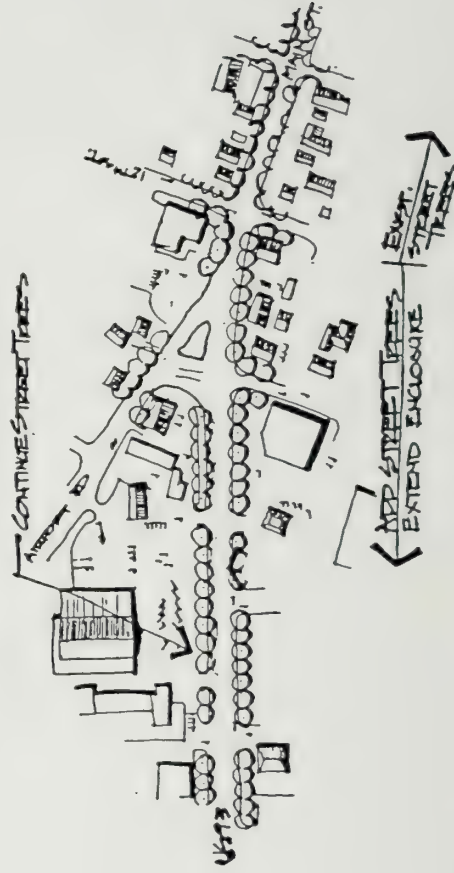 CONTINUE STREET TREES
AIRPORT
MAIN ST.
US 93
ADD STREET TREES
EXTEND ENCLOSURE
EXIST.
STREET
TREES